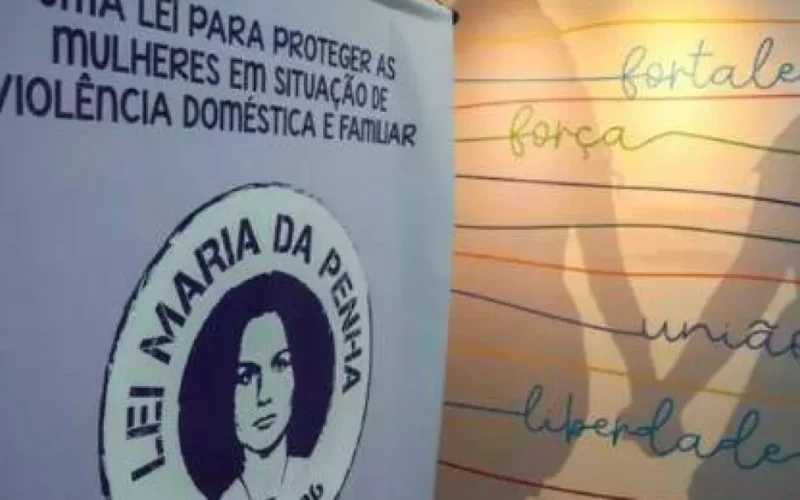 UMA LEI PARA PROTEGER AS
MULHERES EM SITUAÇÃO DE
VIOLÊNCIA DOMÉSTICA E FAMILIAR
LEI MARIA DA PENHA
fortale
força
união
liberdade